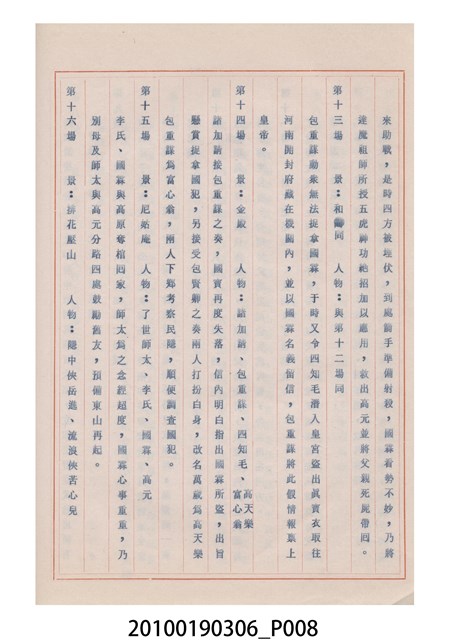 來助戰,是時四方被埋伏,到處動手準備射殺,國霖看勢不妙,乃將
達魔祖師所授五虎神功絕招加以應用,救出高元並將父親死屍帶回。
第十三場 景:和 同 人物:與第十二場同
包重謀動衆無法捉拿國霖,于時又令四知毛潛入皇宮盜出眞寶衣取往
河南開封府藏在機關內,並以國霖名義留信,包重謀將此假情報稟上
皇帝。
第十四場 景:金殿 人物:諸加訥、包重謀、四知毛、高天樂 富心翁
諸加訥接包重謀之奏,國寶再度失落,信內明白指出國霖所盜,出旨
懸賞捉拿國犯,另接受包賢卿之奏兩人打扮白身,改名萬歲爲高天樂
包重謀爲富心翁,兩人下鄉考察民隱,順便調查國犯。
第十五場 景:尼姑庵 人物:了世師太、李氏、國霖、高元
李氏、國霖與高原奪棺囘家,師太爲之念經超度,國霖心事重重,乃
別母及師太與高元分路四處鼓勵舊友,預備東山再起。
第十六場 景:拼花壓山 人物:隱中俠岳進、流浪俠苦心兒
20100190306_P008